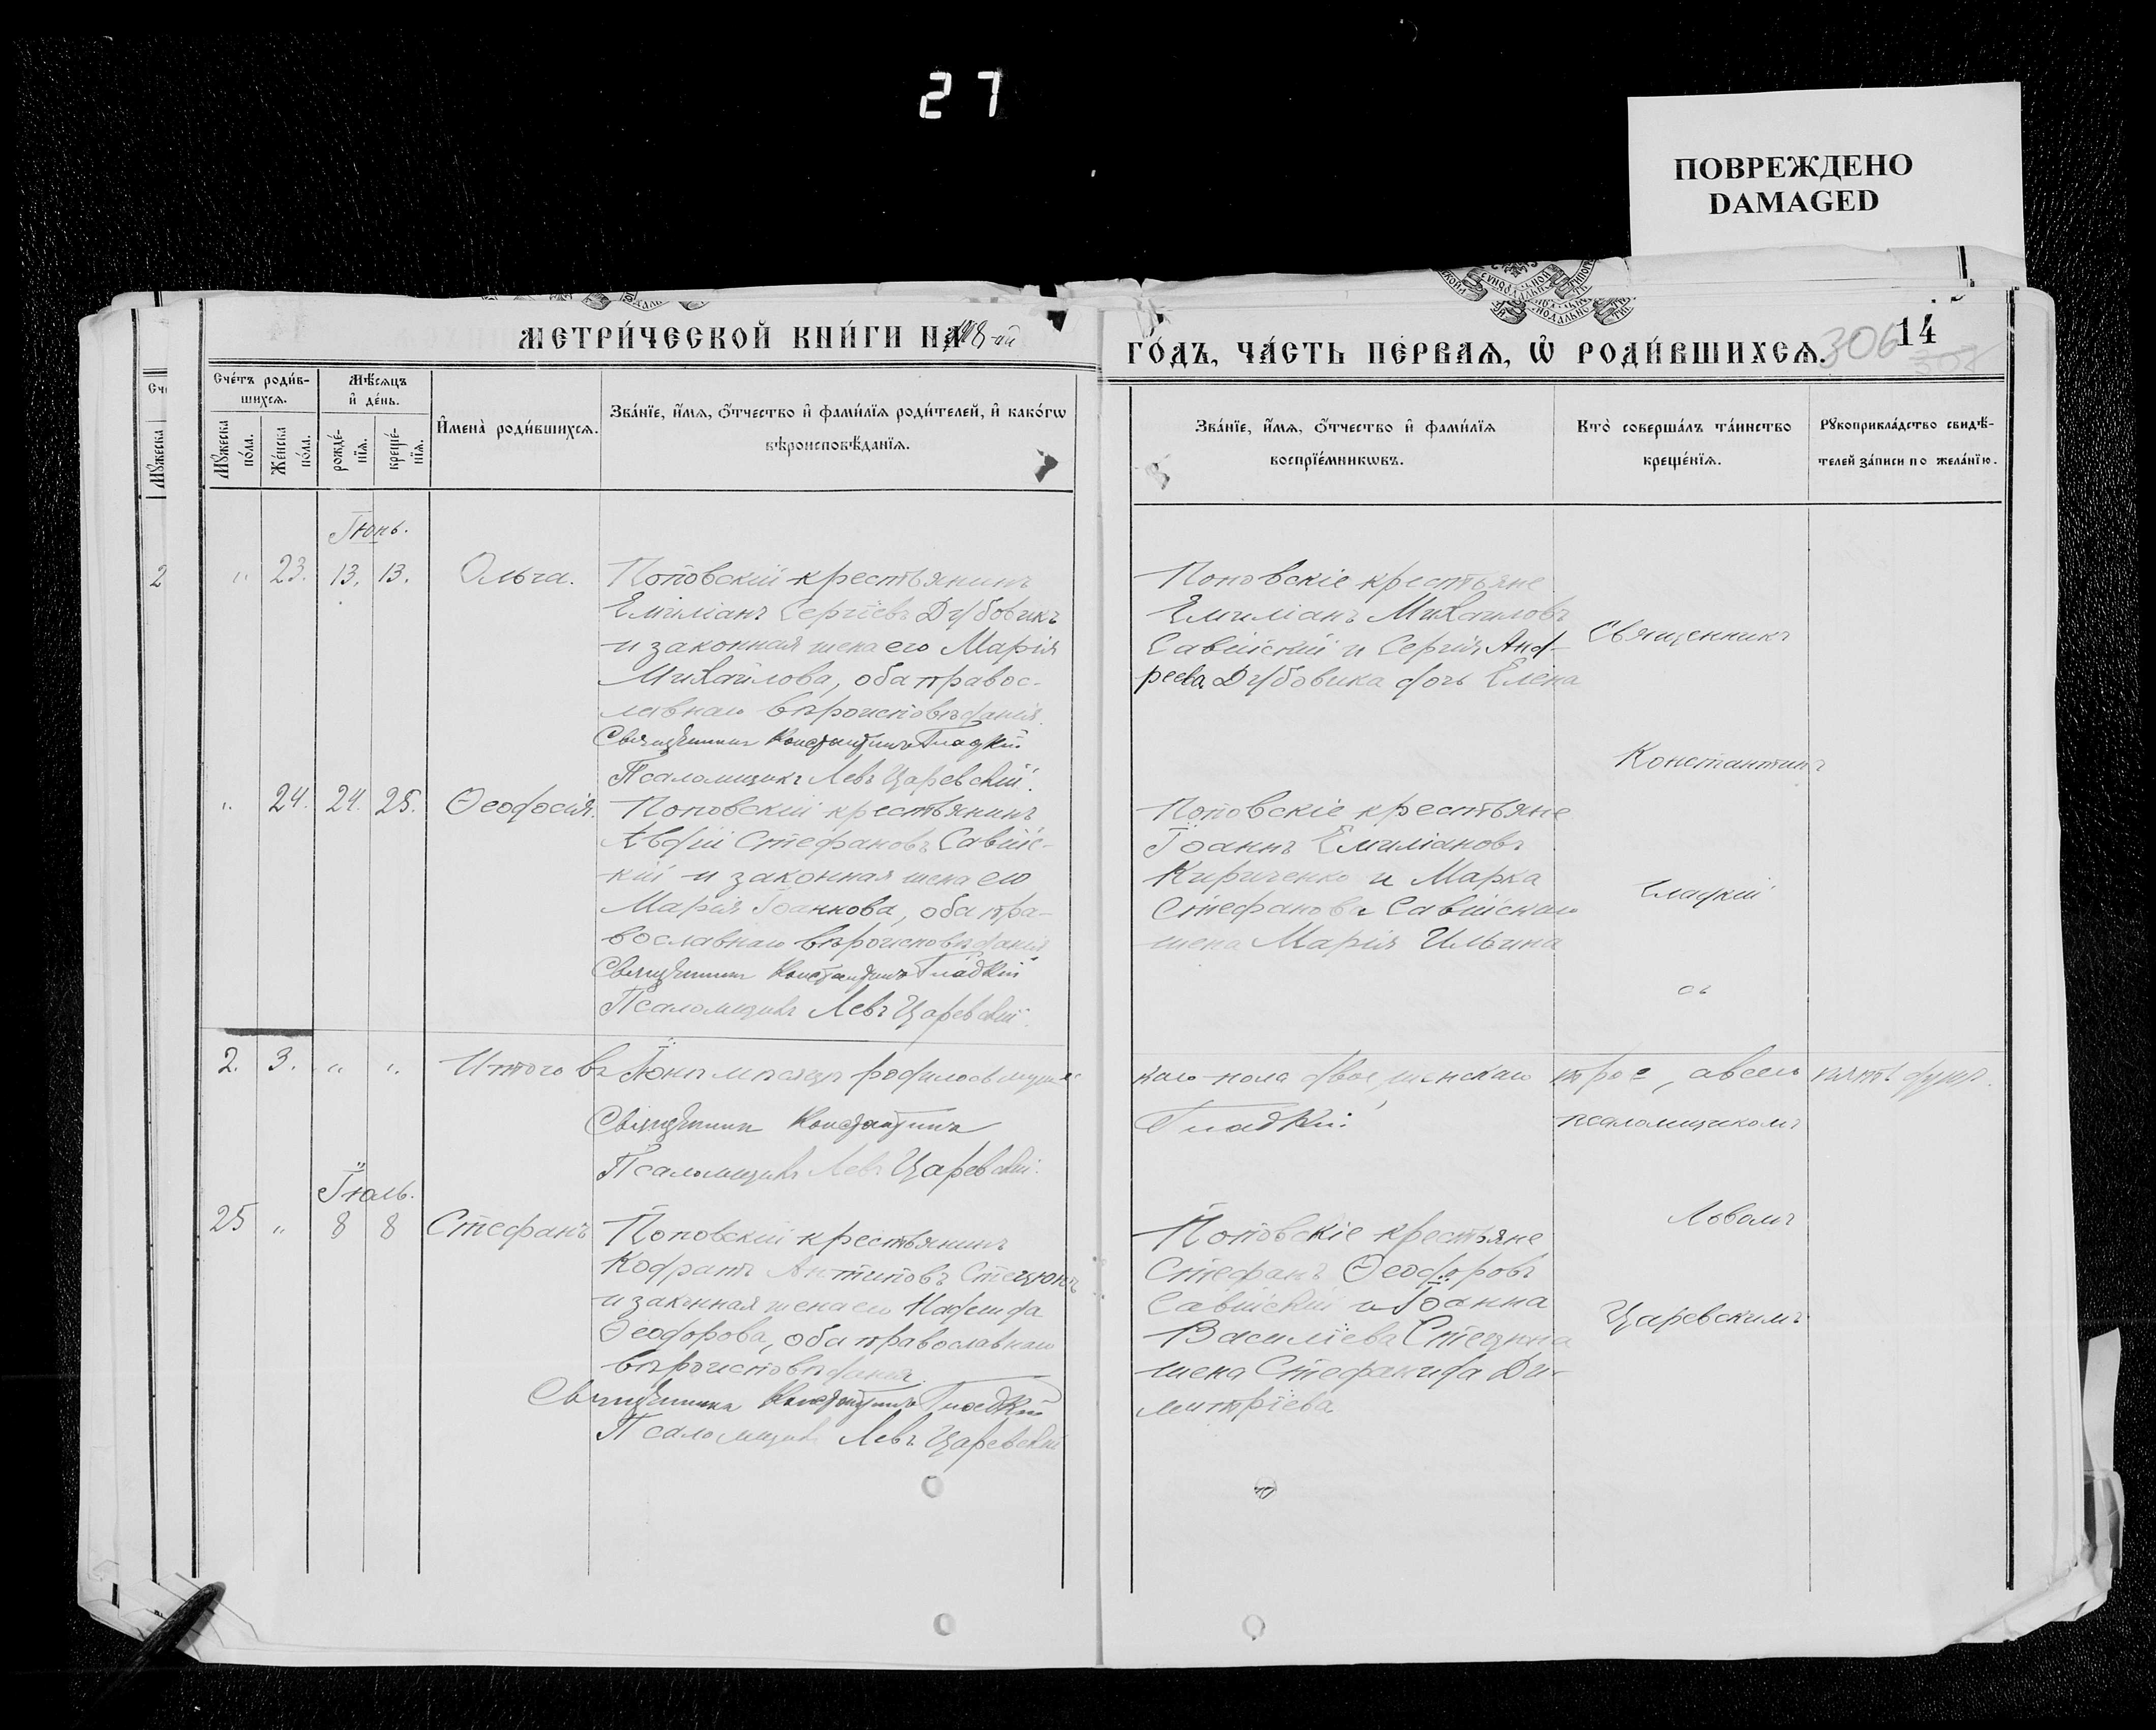 27
ПОВРЕЖДЕНО
DAMAGED
МЕТРИ́ЧЕСКОЙ КНИ́ГИ НА 1918-ый
ГО́ДЪ, ЧА́СТЬ ПЕ́РВАѦ, Ѽ РОДИ́ВШИХСѦ.
306
14
Сче́тъ роди́в-
шихсѧ.
Мѣ́сѧцъ
и҆ де́нь.
Мꙋ́жеска
по́ла.
Же́нска
по́ла.
рожде́-
нїѧ.
креще́-
нїѧ.
И҆мена̀ роди́вшихсѧ.
Зва́нїе, и҆́мѧ, ѻ҆́тчество и҆ фами́лїѧ роди́телей, и҆ како́гѡ
вѣроисповѣ́данїѧ.
Зва́нїе, и҆́мѧ, ѻ҆́тчество и҆ фами́лїѧ
воспрїе́мникѡвъ.
Кто̀ соверша́лъ та́инство
креще́нїѧ.
Рꙋкоприкла́дство свидѣ́-
телей за́писи по жела́нїю.
Іюнь.
" 23. 13. 13. Ольга.
Поповскій крестьянинъ
Емиліанъ Сергіевъ Дубовикъ
и законная жена его Марія
Михайлова, оба правос-
лавнаго вѣроисповѣданія.
Священникъ Константинъ Гладкій
Псаломщикъ Левъ Царевскій.
Поповскіе крестьяне
Емиліанъ Михаиловъ
Савійскій и Сергія Анд-
реева Дубовика дочь Елена
Священникъ
Константинъ
Гладкій
съ
" 24. 24. 25. Ѳеодосія.
Поповскій крестьянинъ
Авдій Стефановъ Савійс-
кій и законная жена его
Марія Іоаннова, оба пра-
вославнаго вѣроисповѣданія
Священникъ Константинъ Гладкій
Псаломщикъ Левъ Царевскій.
Поповскіе крестьяне
Іоаннъ Емиліановъ
Кириченко и Марка
Стефанова Савійскаго
жена Марія Ильина
2. 3. " " Итого въ Іюнѣ мѣсяцѣ родилось мужес
каго пола двое, женскаго трое, а всего пять душъ.
Священникъ Константинъ
Гладкій
псаломщикомъ
Псаломщикъ Левъ Царевскій.
Іюль.
25 " 8 8 Стефанъ
Поповскій крестьянинъ
Кодратъ Антиповъ Стецюкъ
и законная жена его
Ѳеодорова, оба православнаго
вѣроисповѣданія.
Священникъ Константинъ Гладкій
Псаломщикъ Левъ Царевскій
Поповскіе крестьяне
Стефанъ Ѳеодоровъ
Савійскій и Іоанна
Василіева
жена Стефанида Ди-
митріева
Львомъ
Царевскимъ